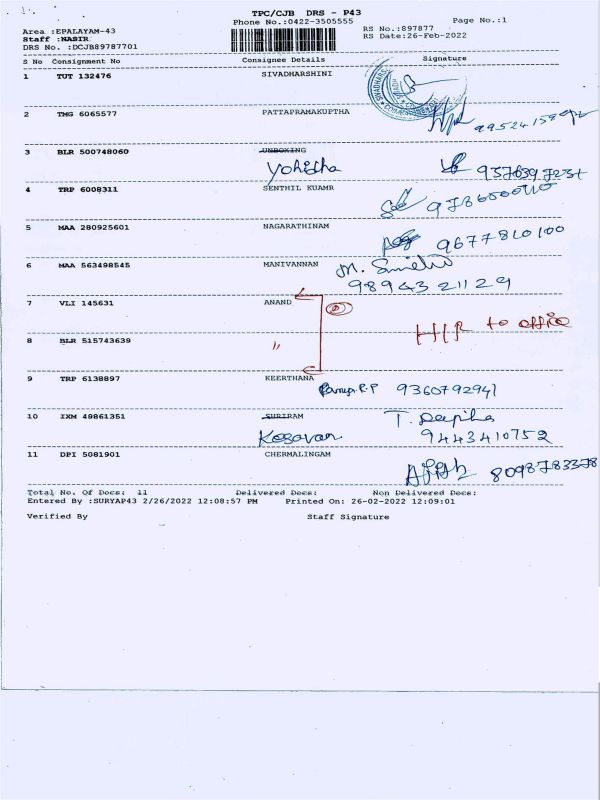 TPC/CJB DRS - P43
Phone No.:0422-3505555
Page No.:1
Area :EPALAYAM-43
RS No.:897877
Staff :NASIR
RS Date:26-Feb-2022
DRS No. :DCJB89787701
S No Consignment No Consignee Details Signature
1 TUT 132476 SIVADHARSHINI
2 TMG 6065577 PATTAPRAMAKUPTHA
3 BLR 500748060 UNBOXING
Yohistha
4 TRP 6008311 SENTHIL KUAMR
5 MAA 280925601 NAGARATHINAM
9677810100
6 MAA 563498545 MANIVANNAN
98943 21129
7 VLI 145631 ANAND
to office
8 BLR 515743639 "
9 TRP 6138897 KEERTHANA
9360792941
10 IXM 49861351 SURIRAM
Kesavan T. Deepika
9443410752
11 DPI 5081901 CHERMALINGAM
8098783378
Total No. Of Docs: 11 Delivered Docs: Non Delivered Docs:
Entered By :SURYAP43 2/26/2022 12:08:57 PM Printed On: 26-02-2022 12:09:01
Verified By Staff Signature